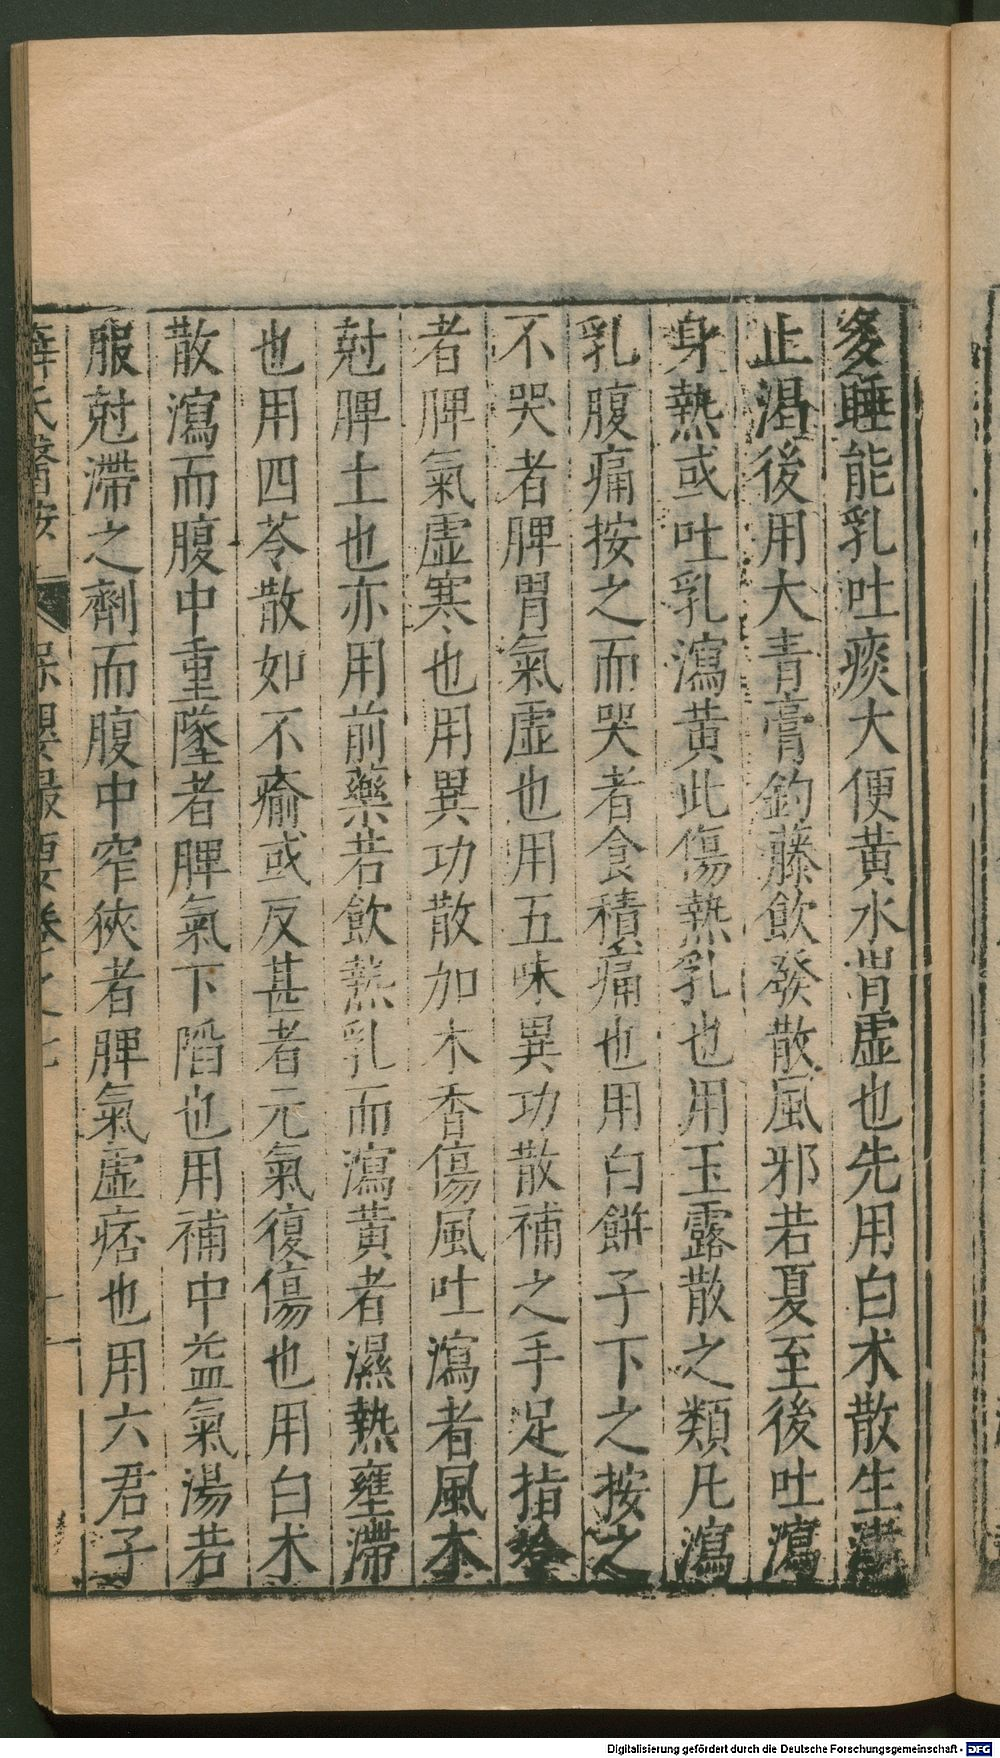 多睡能乳吐痰大便黄水胃虚也先用白术散生津
止渴後用大青膏釣藤飲發散風邪若夏至後吐瀉
身熱或吐乳瀉黄此傷熱乳也用玉露散之類凡瀉
乳腹痛按之而哭者食積痛也用白餅子下之按之
不哭者脾胃氣虚也用五味異功散補之手足指冷
者脾氣虚寒也用異功散加木香傷風吐瀉者風木
尅脾土也亦用前藥若飲熱乳而瀉黄者濕熱壅滯
也用四苓散如不瘉或反甚者元氣復傷也用白术
散瀉而腹中重墜者脾氣下陷也用補中益氣湯若
服尅滯之劑而腹中窄狹者脾氣虚痞也用六君子
薛氏醫按 保嬰撮要卷之七 十一
Digitalisierung gefördert durch die Deutsche Forschungsgemeinschaft - DFG